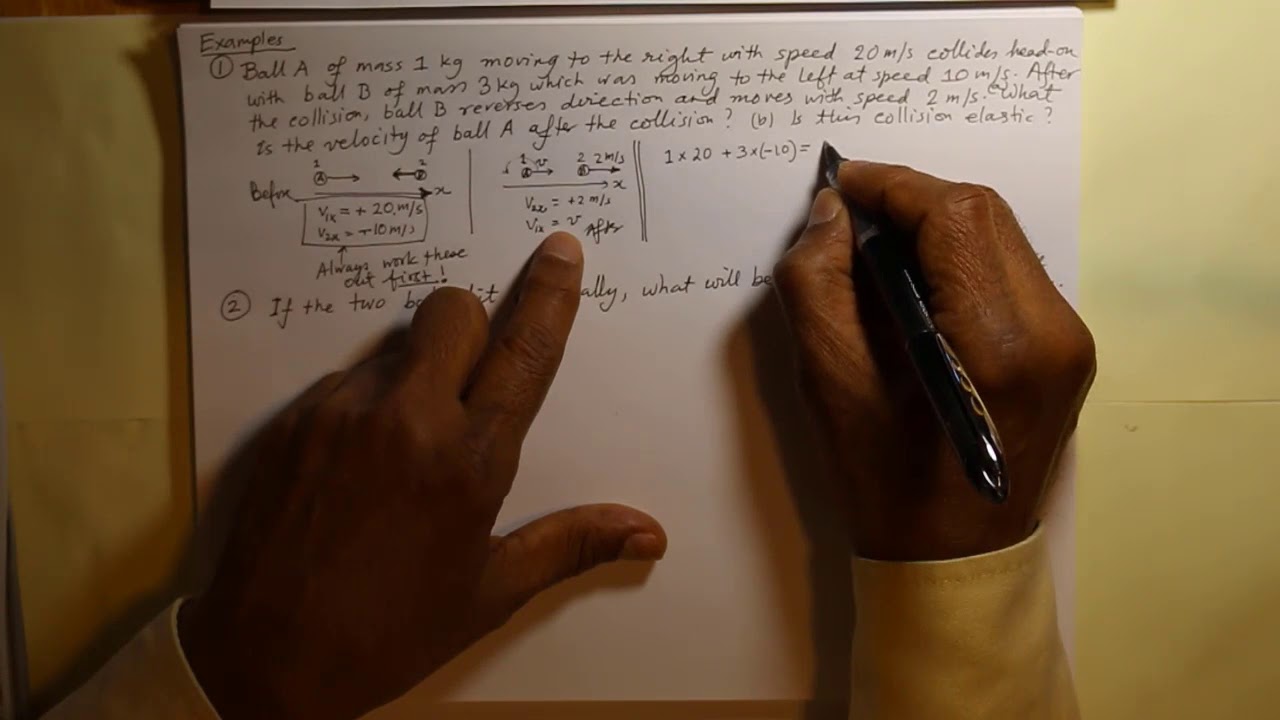 Examples
① Ball A of mass 1 kg moving to the right with speed 20 m/s collides head-on
with ball B of mass 3 kg which was moving to the left at speed 10 m/s. After
the collision, ball B reverses direction and moves with speed 2 m/s. What
is the velocity of ball A after the collision? (b) Is this collision elastic?
1 2
A
Before x
V1x = + 20 m/s
V2x = -10 m/s
Always work these
out first!
1 v 2 2 m/s
A B
x
V2x = +2 m/s
V1x = v After
1 x 20 + 3x(-10) =
② If the two , what will be